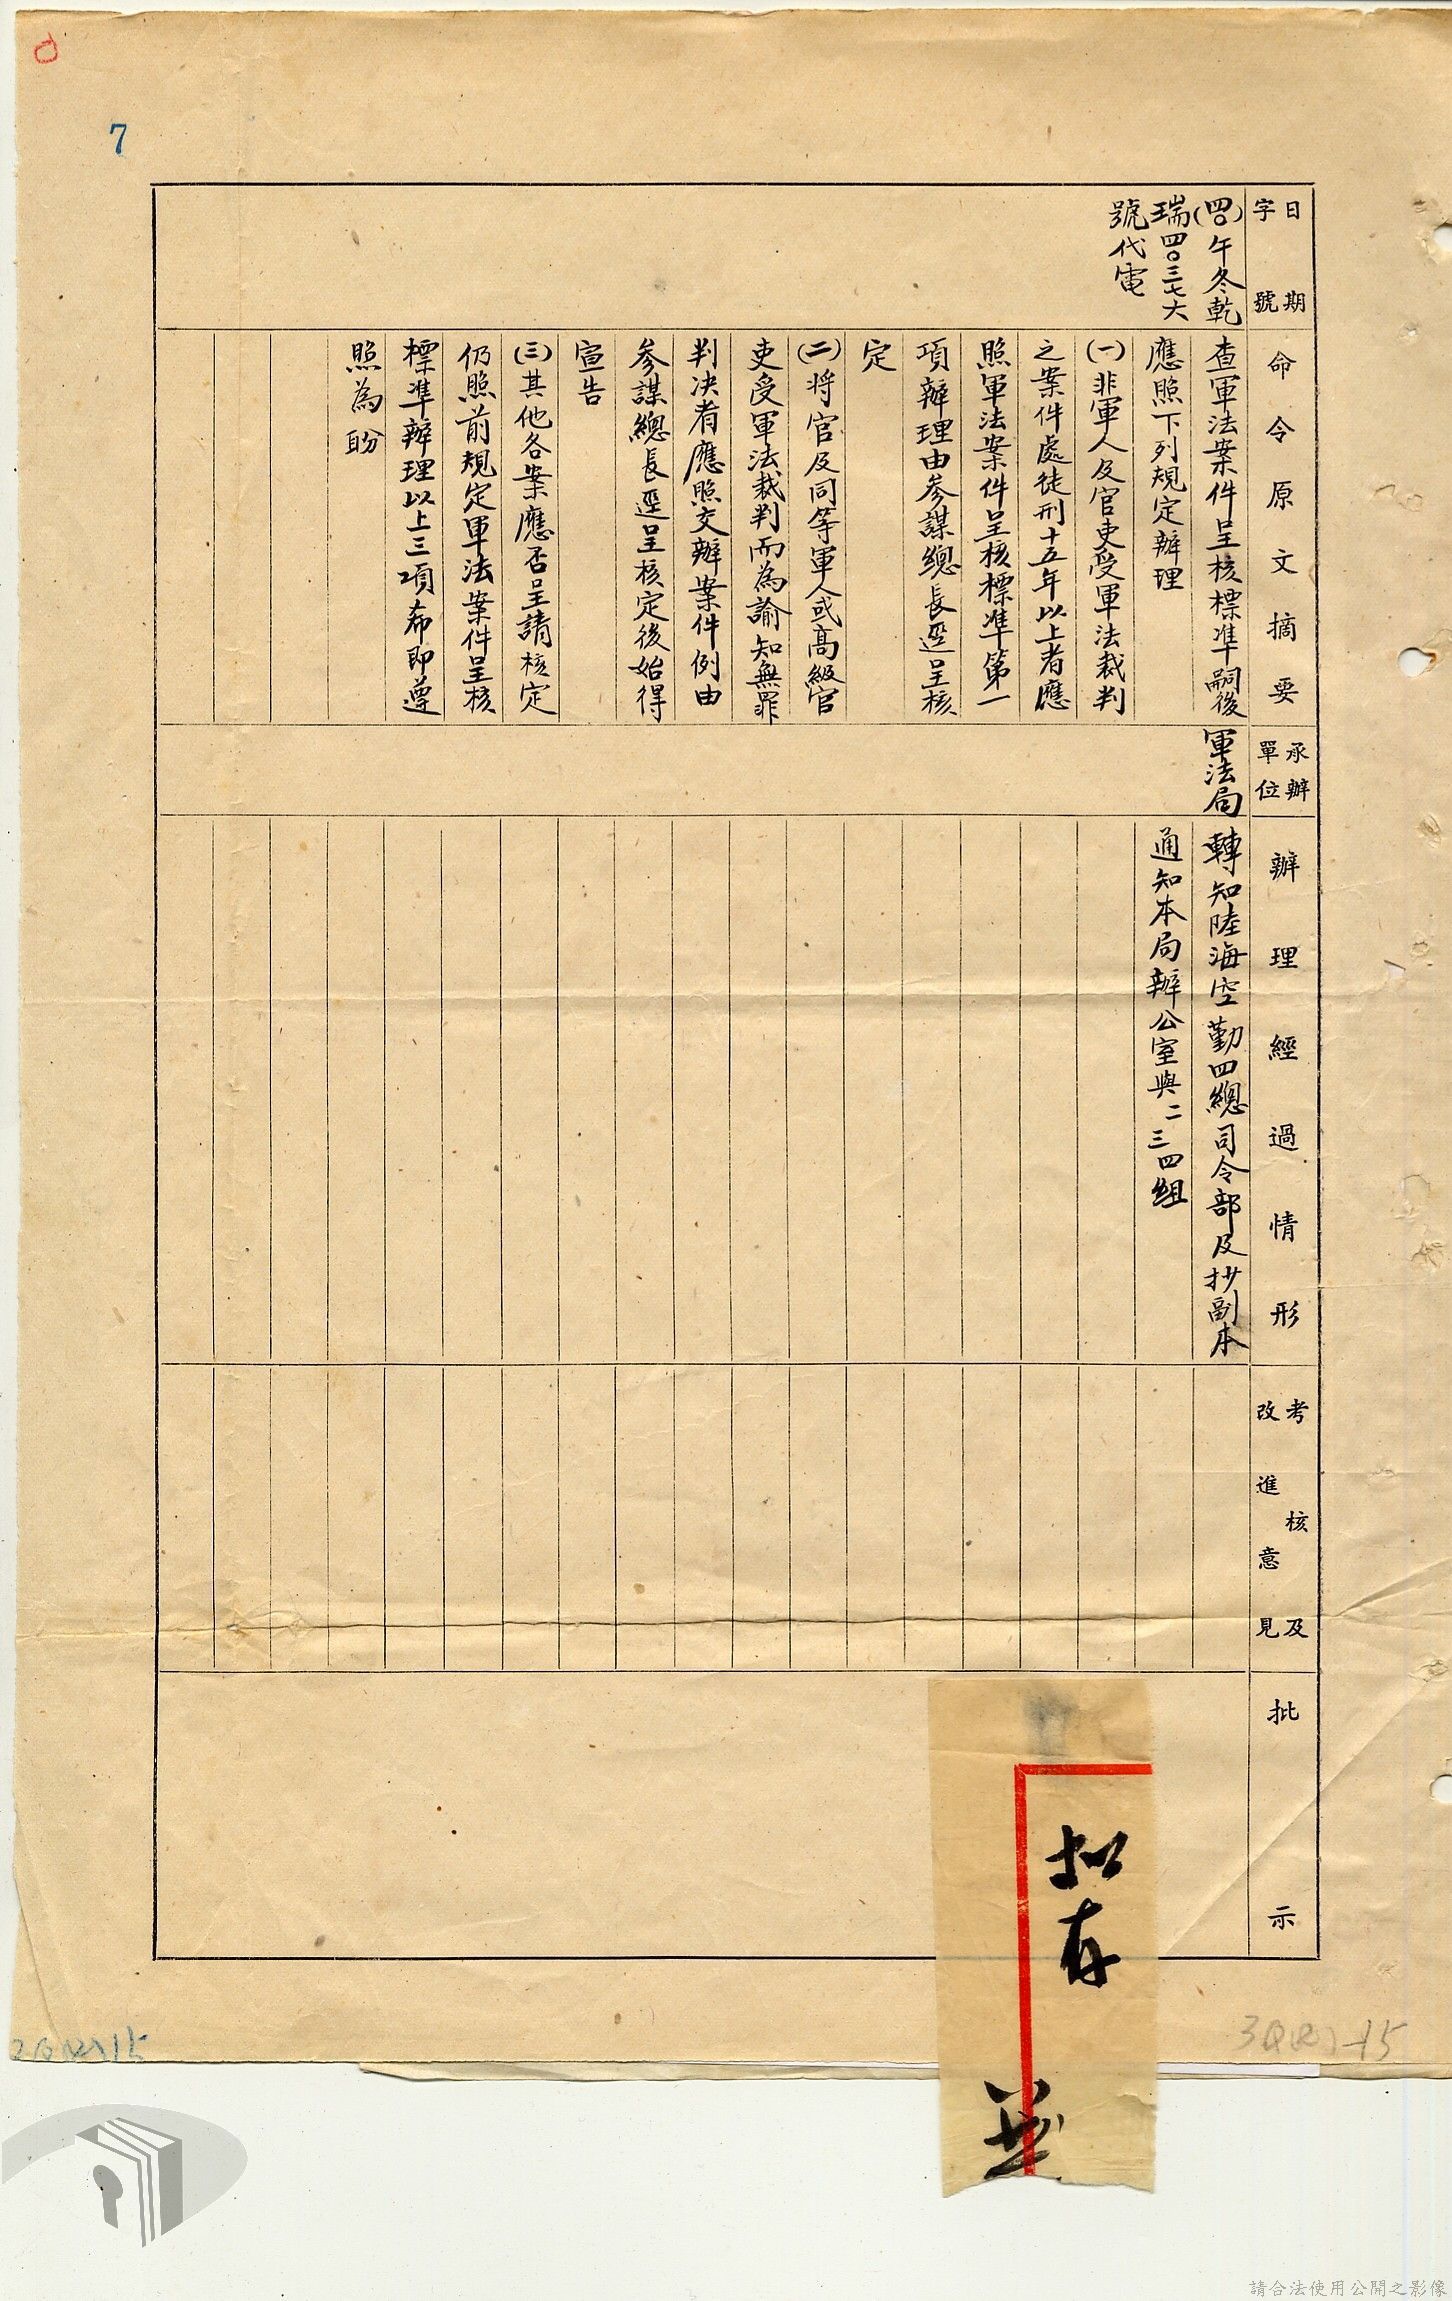 7
日期
字號
(四〇)午冬乾
瑞四〇三七六
號代電
命令原文摘要
查軍法案件呈核標準嗣後
應照下列規定辦理
(一)非軍人及官吏受軍法裁判
之案件處徒刑十五年以上者應
照軍法案件呈核標準第一
項辦理由參謀總長逕呈核
定
(二)將官及同等軍人或高級官
吏受軍法裁判而為諭知無罪
判决者應照交辦案件例由
參謀總長逕呈核定後始得
宣告
(三)其他各案應否呈請核定
仍照前規定軍法案件呈核
標準辦理以上三項希即遵
照為盼
承辦
單位
軍法局
辦理經過情形
轉知陸海空勤四總司令部及抄副本
通知本局辦公室與二三四組
考核及
改進意見
批示
存
3Q(2)-15
請合法使用公開之影像